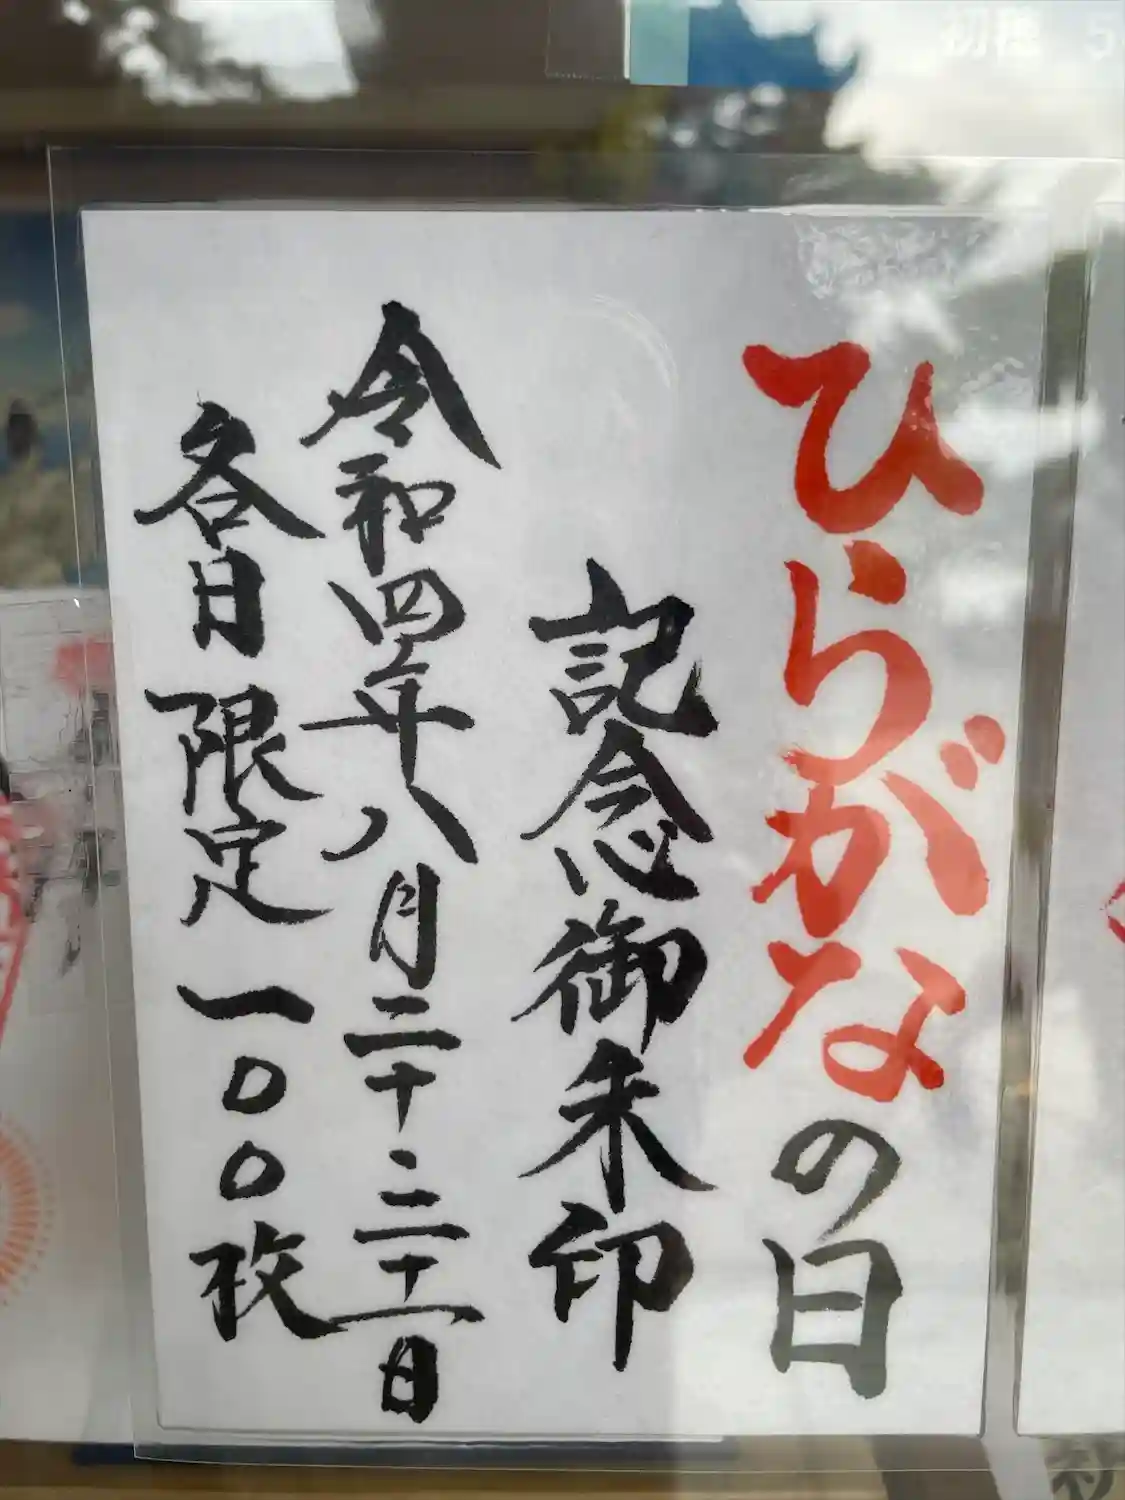 初穂
ひらがなの日
記念御朱印
令和四年八月二十、二十一日
各日 限定 一〇〇枚